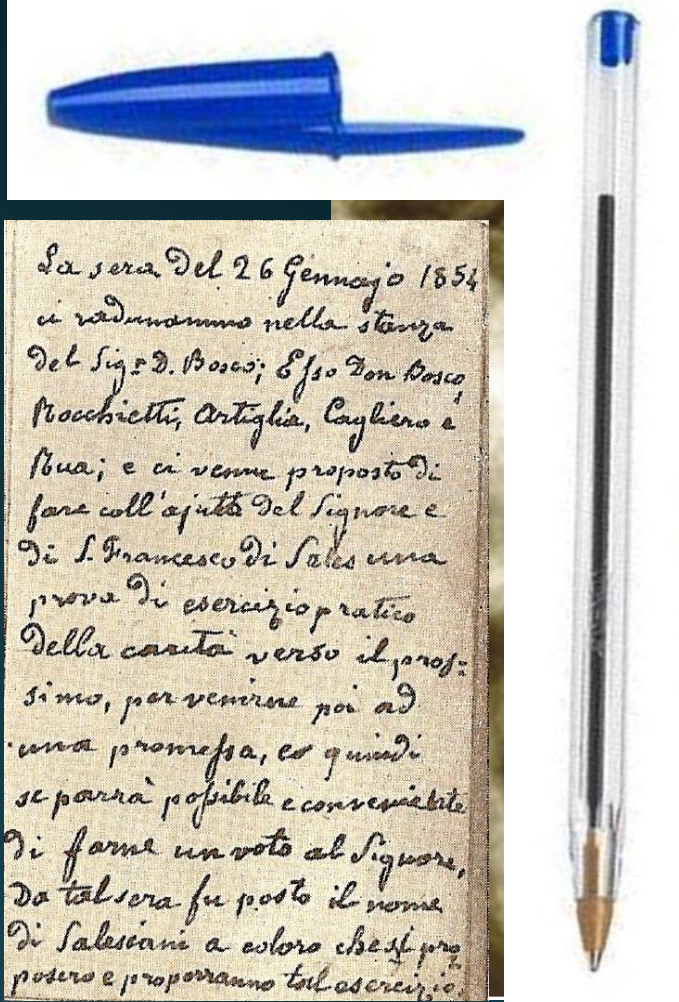 La sera del 26 Gennajo 1854
ci radunammo nella stanza
del Sigʳ D. Bosco; Esso Don Bosco,
Rocchietti, Artiglia, Cagliero e
Rua; e ci venne proposto di
fare coll'ajuto del Signore e
di S. Francesco di Sales una
prova di esercizio pratico
della carità verso il pros=
simo, per venirne poi ad
una promessa, e quindi
se parrà possibile e conveniente
di farne un voto al Signore,
Da tal sera fu posto il nome
di Salesiani a coloro che si pro
posero e proporranno tal esercizio.